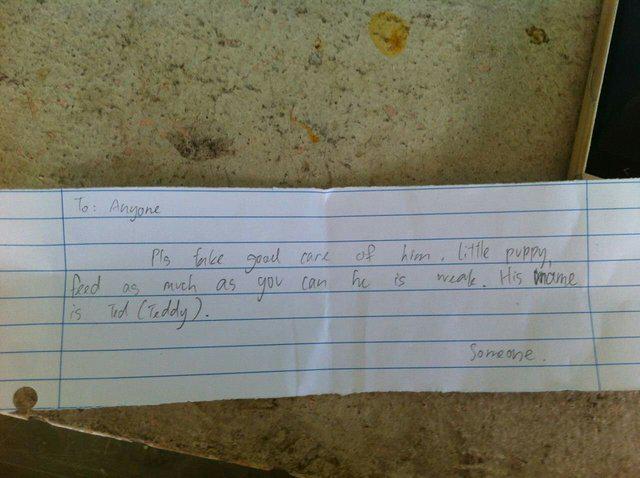 To: Anyone
Pls take good care of him, little puppy,
feed as much as you can he is weak. His name
is Ted (Teddy).
Someone.